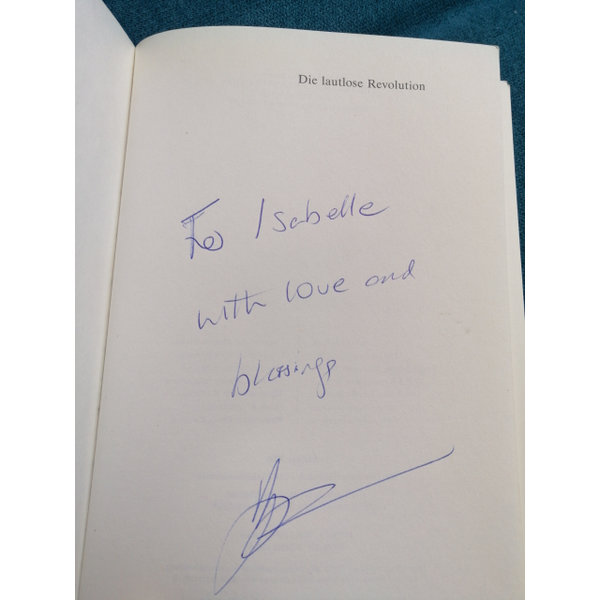 Die lautlose Revolution
To Isabelle
with love and
blessings